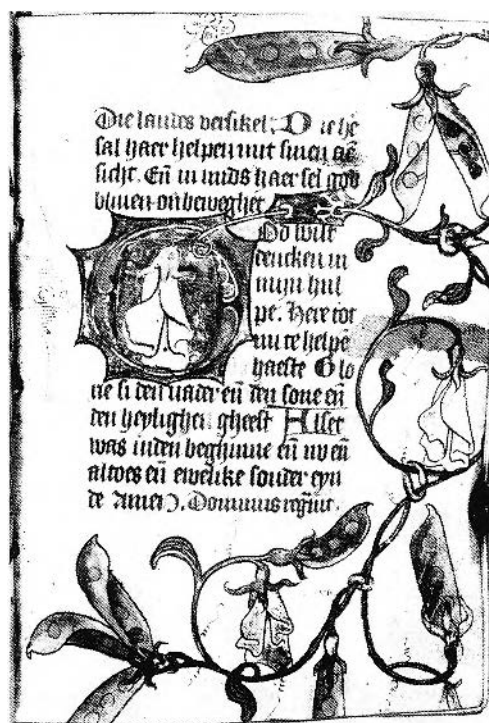 Die laudes versikel. Die he
sal haer helpen mit sinen aē
sicht. Eñ in mids haer sel god
bliuen onbeweghet
God wilt
dencken in
mijn hul
pe. Here tot
mi te helpē
haeste Glo
rie si den vader eñ den sone eñ
den heylighen gheest Alset
was inden beghinne eñ nv eñ
altoes eñ ewelike sonder eyn
de Amen. Dominus regnͥt.